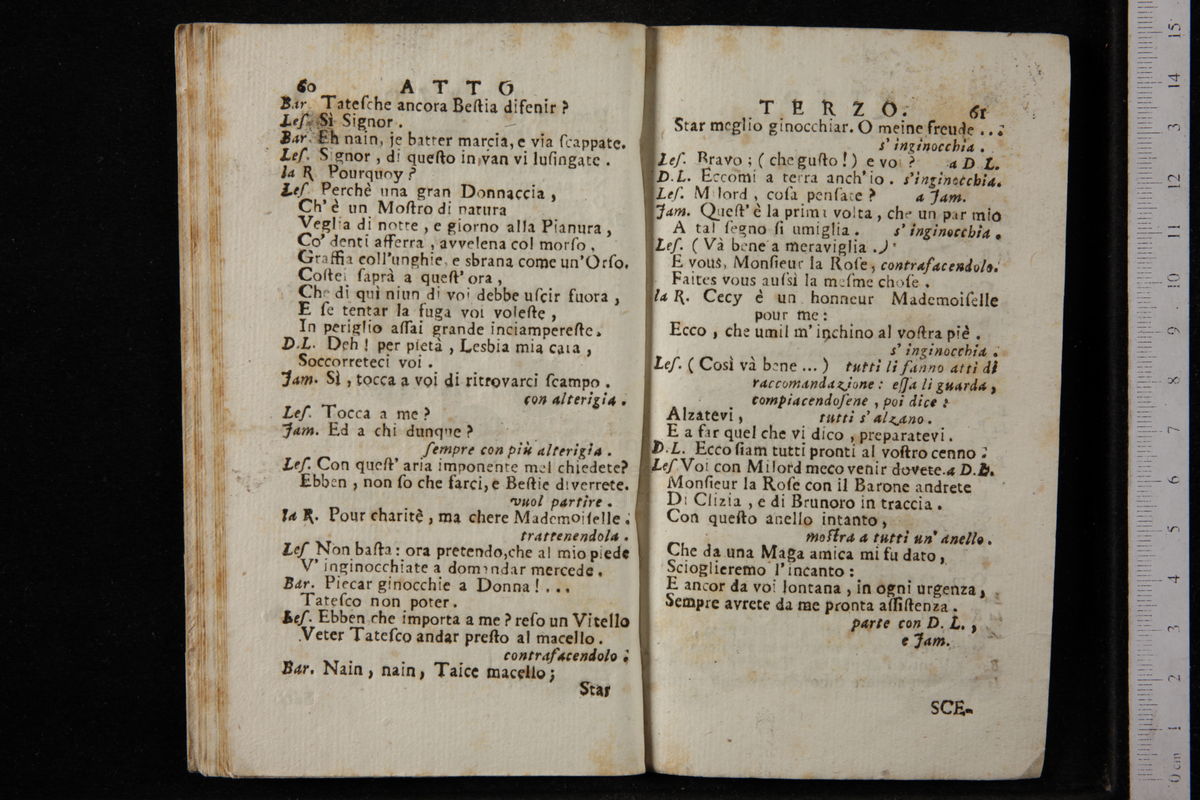 60 ATTO
Bar. Tateſche ancora Beſtia diſenir ?
Leſ. Sì Signor .
Bar. Eh nain, je batter marcia, e via ſcappate.
Leſ. Signor , di queſto in van vi luſingate .
la R. Pourquoy ?
Leſ. Perchè una gran Donnaccia ,
Ch' è un Moſtro di natura
Veglia di notte , e giorno alla Pianura ,
Co' denti afferra , avvelena col morſo ,
Graffia coll'unghie, e sbrana come un'Orſo.
Coſtei ſaprà a queſt' ora ,
Che di qui niun di voi debbe uſcir fuora ,
E ſe tentar la fuga voi voleſte ,
In periglio aſſai grande inciampereſte.
D.L. Deh ! per pietà , Lesbia mia cara ,
Soccorreteci voi .
Jam. Sì , tocca a voi di ritrovarci ſcampo .
con alterigia .
Leſ. Tocca a me ?
Jam. Ed a chi dunque ?
ſempre con più alterigia .
Leſ. Con queſt' aria imponente mel chiedete?
Ebben , non ſo che farci, e Beſtie diverrete.
vuol partire .
la R. Pour charitè , ma chere Mademoiſelle .
trattenendola .
Leſ Non baſta : ora pretendo,che al mio piede
V' inginocchiate a domandar mercede .
Bar. Piecar ginocchie a Donna ! ...
Tateſco non poter .
Leſ. Ebben che importa a me ? reſo un Vitello
Veter Tateſco andar preſto al macello .
contrafacendolo .
Bar. Nain , nain , Taice macello ;
Star
TERZO. 61
Star meglio ginocchiar. O meine freude ...
s' inginocchia .
Leſ. Bravo ; ( che guſto ! ) e voi ? a D L.
D.L. Eccomi a terra anch' io . s'inginocchia.
Leſ. Milord , coſa penſate ? a Jam.
Jam. Queſt' è la prima volta , che un par mio
A tal ſegno ſi umiglia . s' inginocchia .
Leſ. ( Và bene a meraviglia . )
E vous, Monſieur la Roſe , contrafacendolo.
Faites vous auſsi la meſme choſe .
la R. Cecy è un honneur Mademoiſelle
pour me :
Ecco , che umil m' inchino al voſtra piè .
s' inginocchia .
Leſ. ( Così và bene ... ) tutti li fanno atti di
raccomandazione : eſſa li guarda ,
compiacendoſene , poi dice :
Alzatevi , tutti s' alzano .
E a far quel che vi dico , preparatevi .
D.L. Ecco ſiam tutti pronti al voſtro cenno .
Leſ Voi con Milord meco venir dovete. a D.L.
Monſieur la Roſe con il Barone andrete
Di Clizia , e di Brunoro in traccia .
Con queſto anello intanto ,
moſtra a tutti un' anello .
Che da una Maga amica mi fu dato ,
Scioglieremo l' incanto :
E ancor da voi lontana , in ogni urgenza ,
Sempre avrete da me pronta aſſiſtenza .
parte con D. L. ,
e Jam.
SCE-